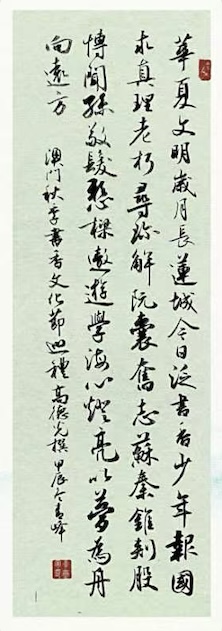 華夏文明歲月長蓮城今日泛書香少年報國
求真理老朽尋珍解阮囊奮志蘇秦錐刺股
博聞孫敬髮懸樑遨遊學海心燈亮以夢為舟
向遠方
澳门秋季書香文化節巡禮高德光撰甲辰青峰